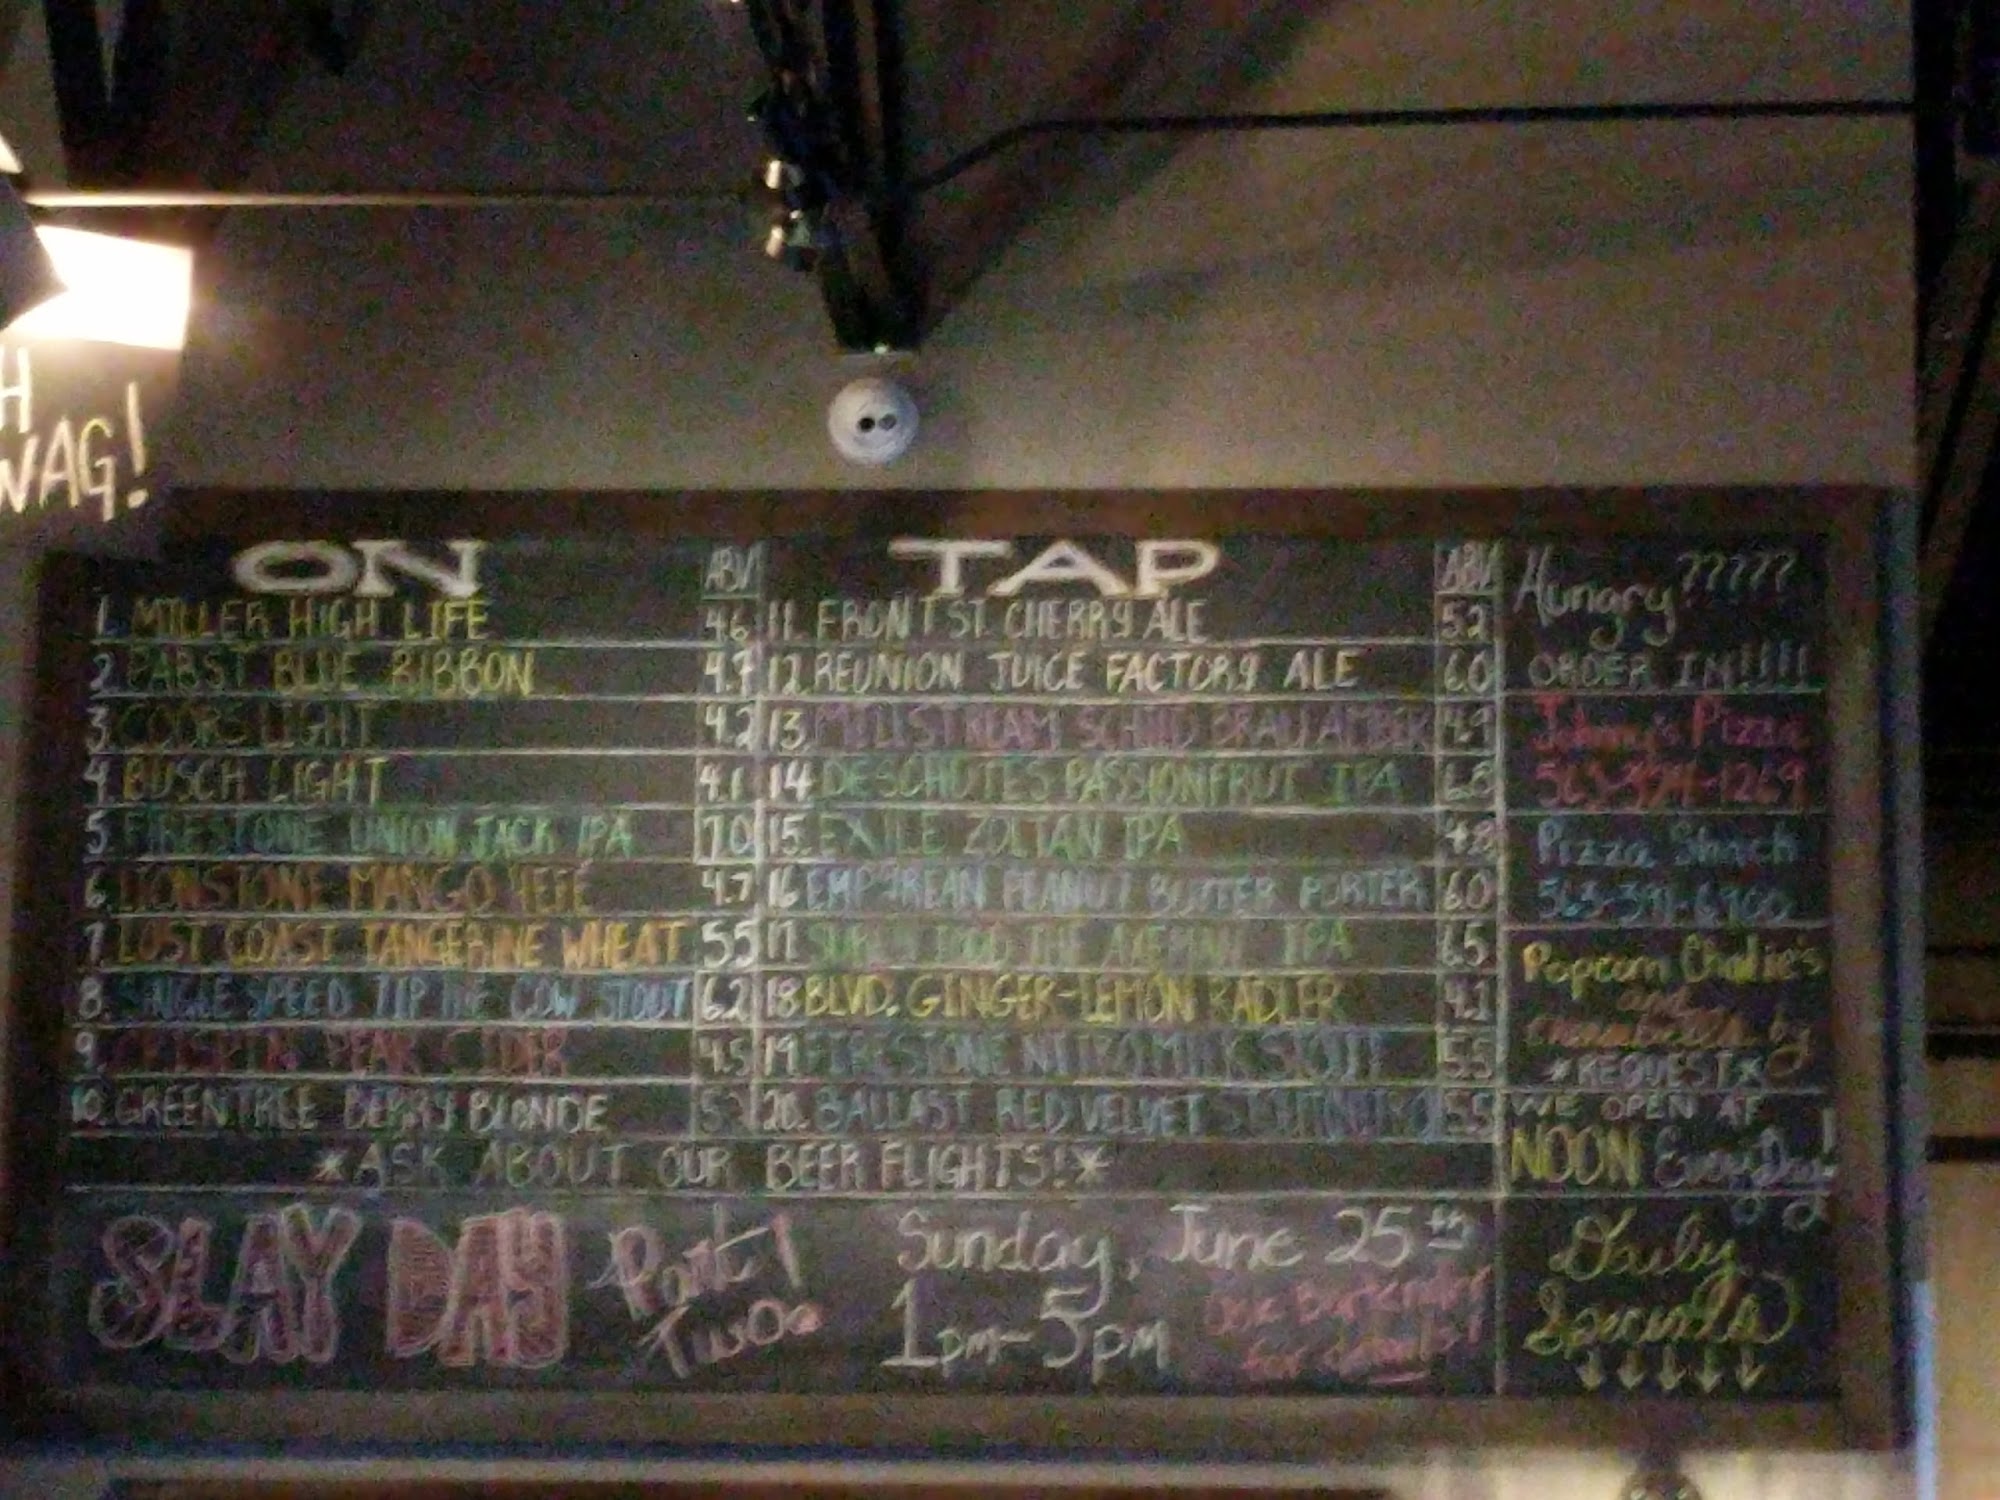 H
WAG!
ON TAP
ABV ABV
1. MILLER HIGH LIFE 4.6
2. PABST BLUE RIBBON 4.7
3. COORS LIGHT 4.2
4. BUSCH LIGHT 4.1
5. FIRESTONE UNION JACK IPA 7.0
6. LIONSTONE MANGO HEFE 4.7
7. LOST COAST TANGERINE WHEAT 5.5
8. SINGLE SPEED TIP THE COW STOUT 6.2
9. CRISPIN PEAR CIDER 4.5
10. GREEN TREE BERRY BLONDE
11. FRONT ST. CHERRY ALE 5.2
12. REUNION JUICE FACTORY ALE 6.0
13. MILLSTREAM SCHILD BRAU AMBER 4.9
14. DESCHUTES PASSIONFRUT IPA
15. EXILE ZOLTAN IPA
16. EMPYREAN PEANUT BUTTER PORTER 6.0
17. THE AXEMAN IPA 6.5
18. BLVD. GINGER-LEMON RADLER 4.1
19. FIRESTONE NITRO MILK STOUT 5.5
20. BALLAST RED VELVET 5.5
*ASK ABOUT OUR BEER FLIGHTS!*
SLAY DAY Part Two
Sunday, June 25th
1pm-5pm
Ask Bartender
for details!
Hungry?????
ORDER IN!!!!
Johnny's Pizza
Pizza Shack
Popcorn Charlie's
and
by
*REQUEST*
WE OPEN AT
NOON Every Day!
Daily
Specials
↓↓↓↓↓